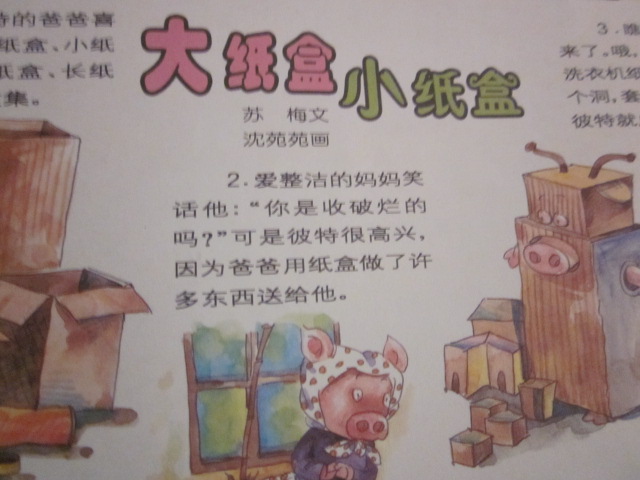 特的爸爸喜
纸盒、小纸
纸盒、长纸
集。
大纸盒
小纸盒
苏 梅文
沈苑苑画
2.爱整洁的妈妈笑
话他:“你是收破烂的
吗?”可是彼特很高兴,
因为爸爸用纸盒做了许
多东西送给他。
3.瞧
来了。哦,
洗衣机纸
个洞,套
彼特就